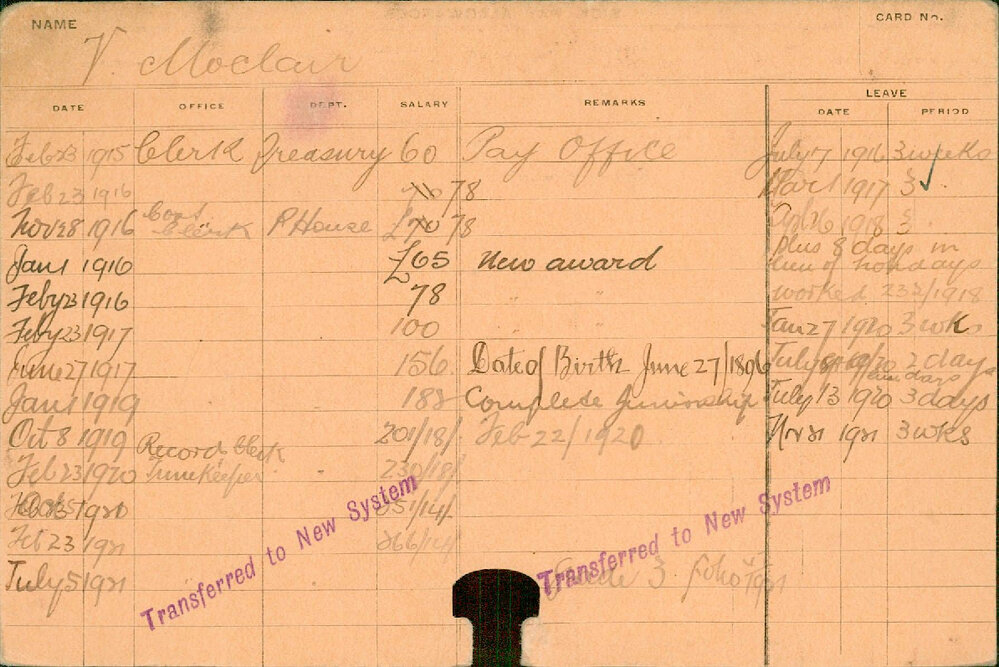 NAME CARD No.
V. Moclair
DATE OFFICE DEPT. SALARY REMARKS LEAVE
DATE PERIOD
Feb 23 1915 Clerk Treasury 60 Pay Office July 17 1916 3 weeks
Feb 23 1916 70 78 1917 3 ✓
Nov 28 1916 Cost Clerk P. House £70 78 1918 3
Jan 1 1916 £65 New award plus 8 days in
lieu of
Feby 23 1916 78 " " worked 1918
Feby 23 1917 100 " Jan 27 1920 3 wks
June 27 1917 156 Date of Birth June 27/1896 July 2 days
Jan 1 1919 188 Complete Juniorship July 13 1920 3 days
Oct 8 1919 Record Clerk 201/18/ Feb 22/1920 1921 3 wks
Feb 23 1920 Timekeeper 230/18/
1920 251/14/
Feb 23 1921 266/14/
July 5 1921 Grade 3
Transferred to New System
Transferred to New System